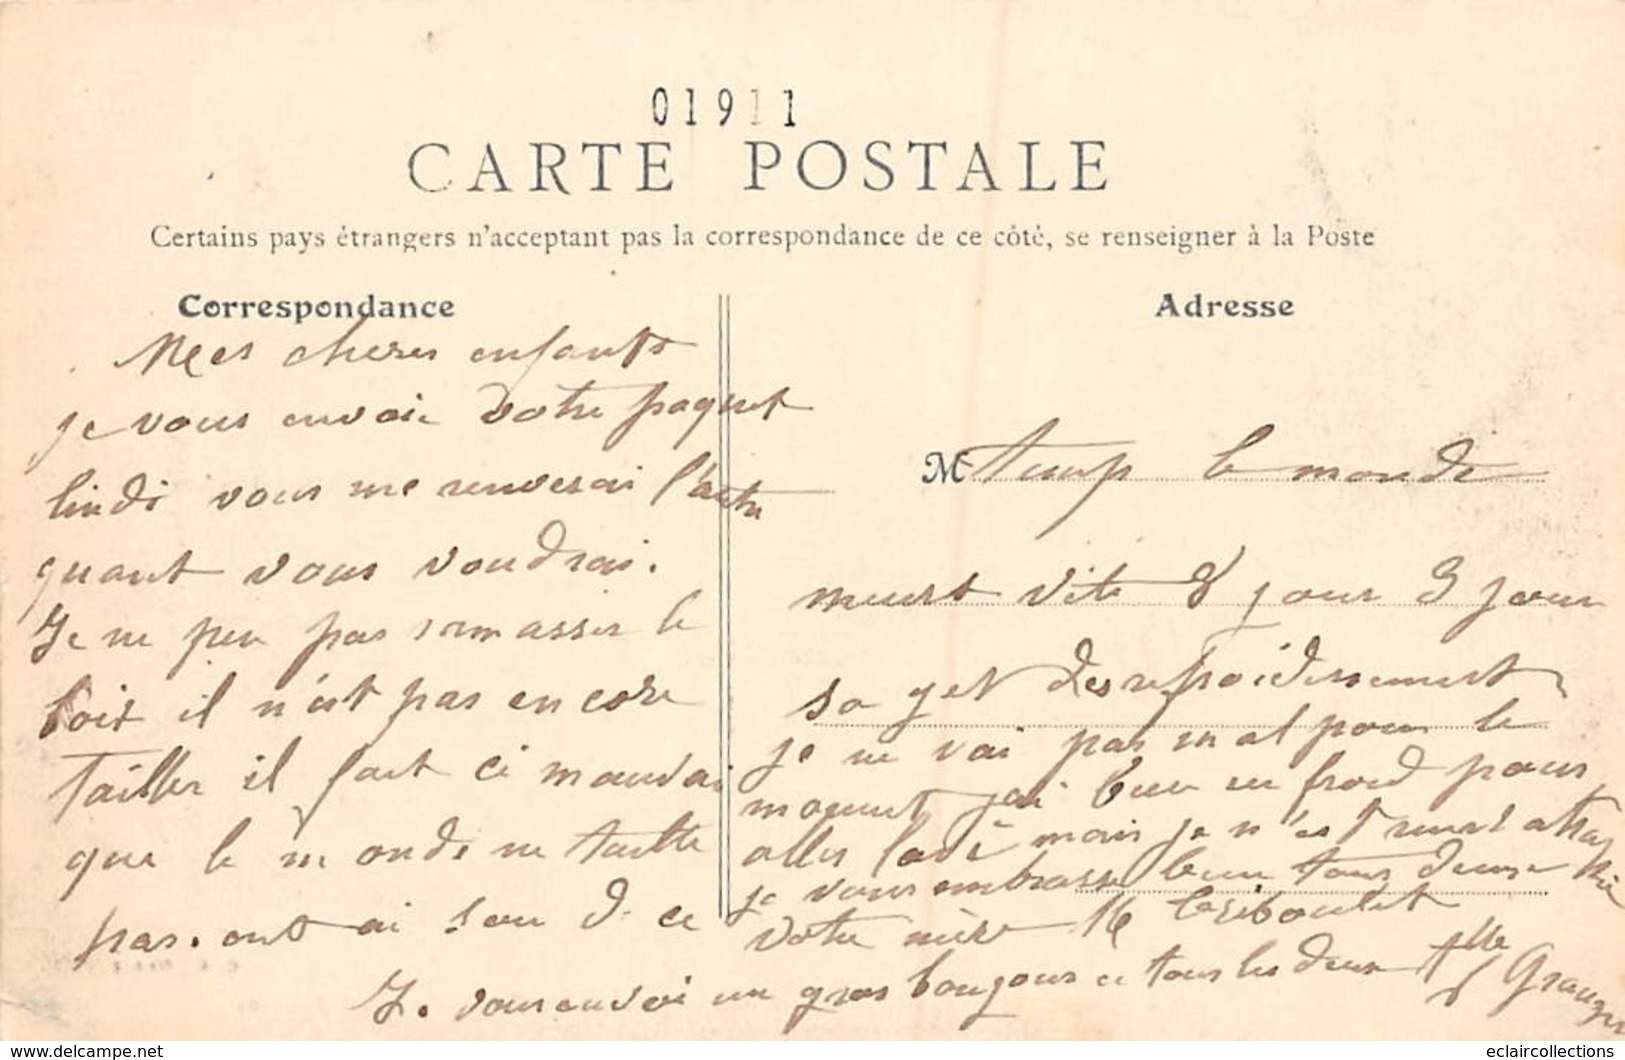 01911
CARTE POSTALE
Certains pays étrangers n'acceptant pas la correspondance de ce côté, se renseigner à la Poste
Correspondance
Mes cheres enfants
je vous envoie votre paquet
lindi vous me renverai l'autre
quant vous voudrai.
Je ne peu pas ramasser le
bois il n'est pas encore
tailler il fait ci mauvai
que le monde ne taille
pas. ont ai sou d ce
Adresse
M temp le monde
meurt vite 8 jour 3 jour
so get des refroidissement
je ne vai pas mal pour le
moment jai bien eu froid pour
aller lavé mais je n'est rient attrapé
je vous embrasse bien tous deux
votre mère Triboulet
Je vous envoi un gros bonjour a tous les deux Mlle
Grange
www.delcampe.net
eclaircollections